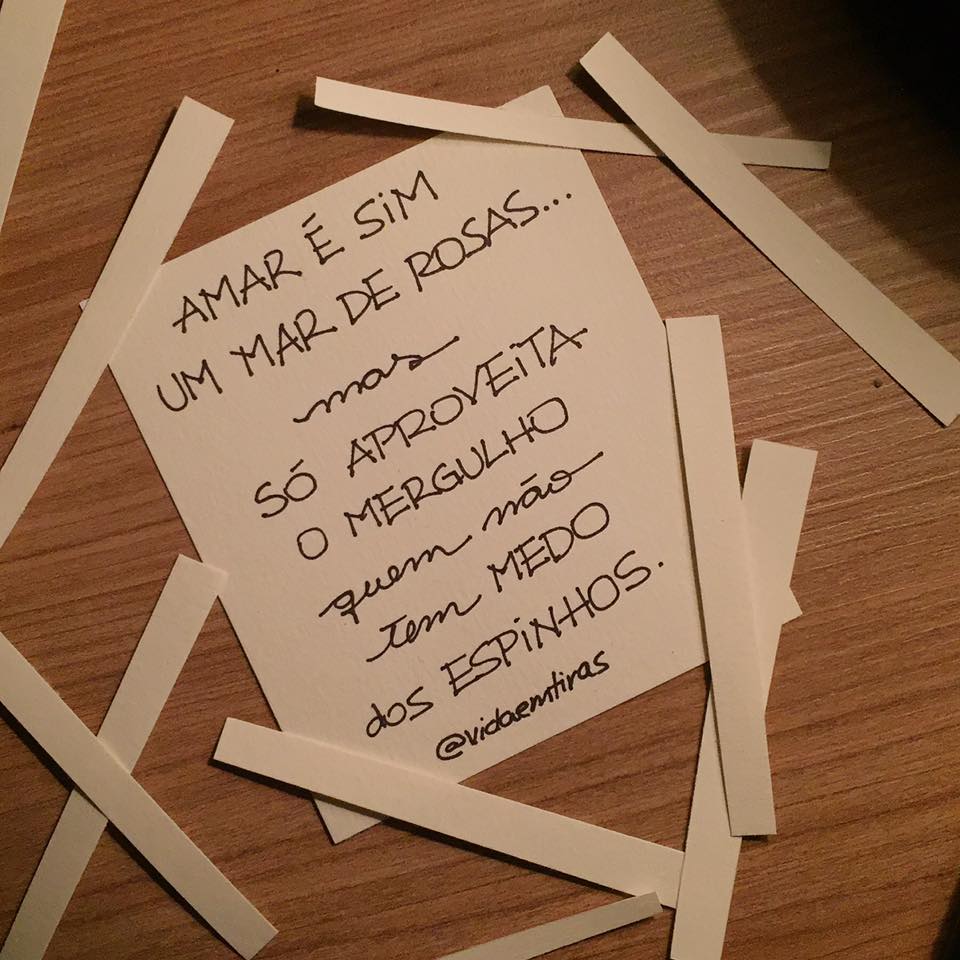 AMAR É SiM
UM MAR DE ROSAS...
mas
SÓ APROVEiTA
O MERGULHO
quem não
tem MEDO
dos ESPiNHOS.
@vidaemtiras